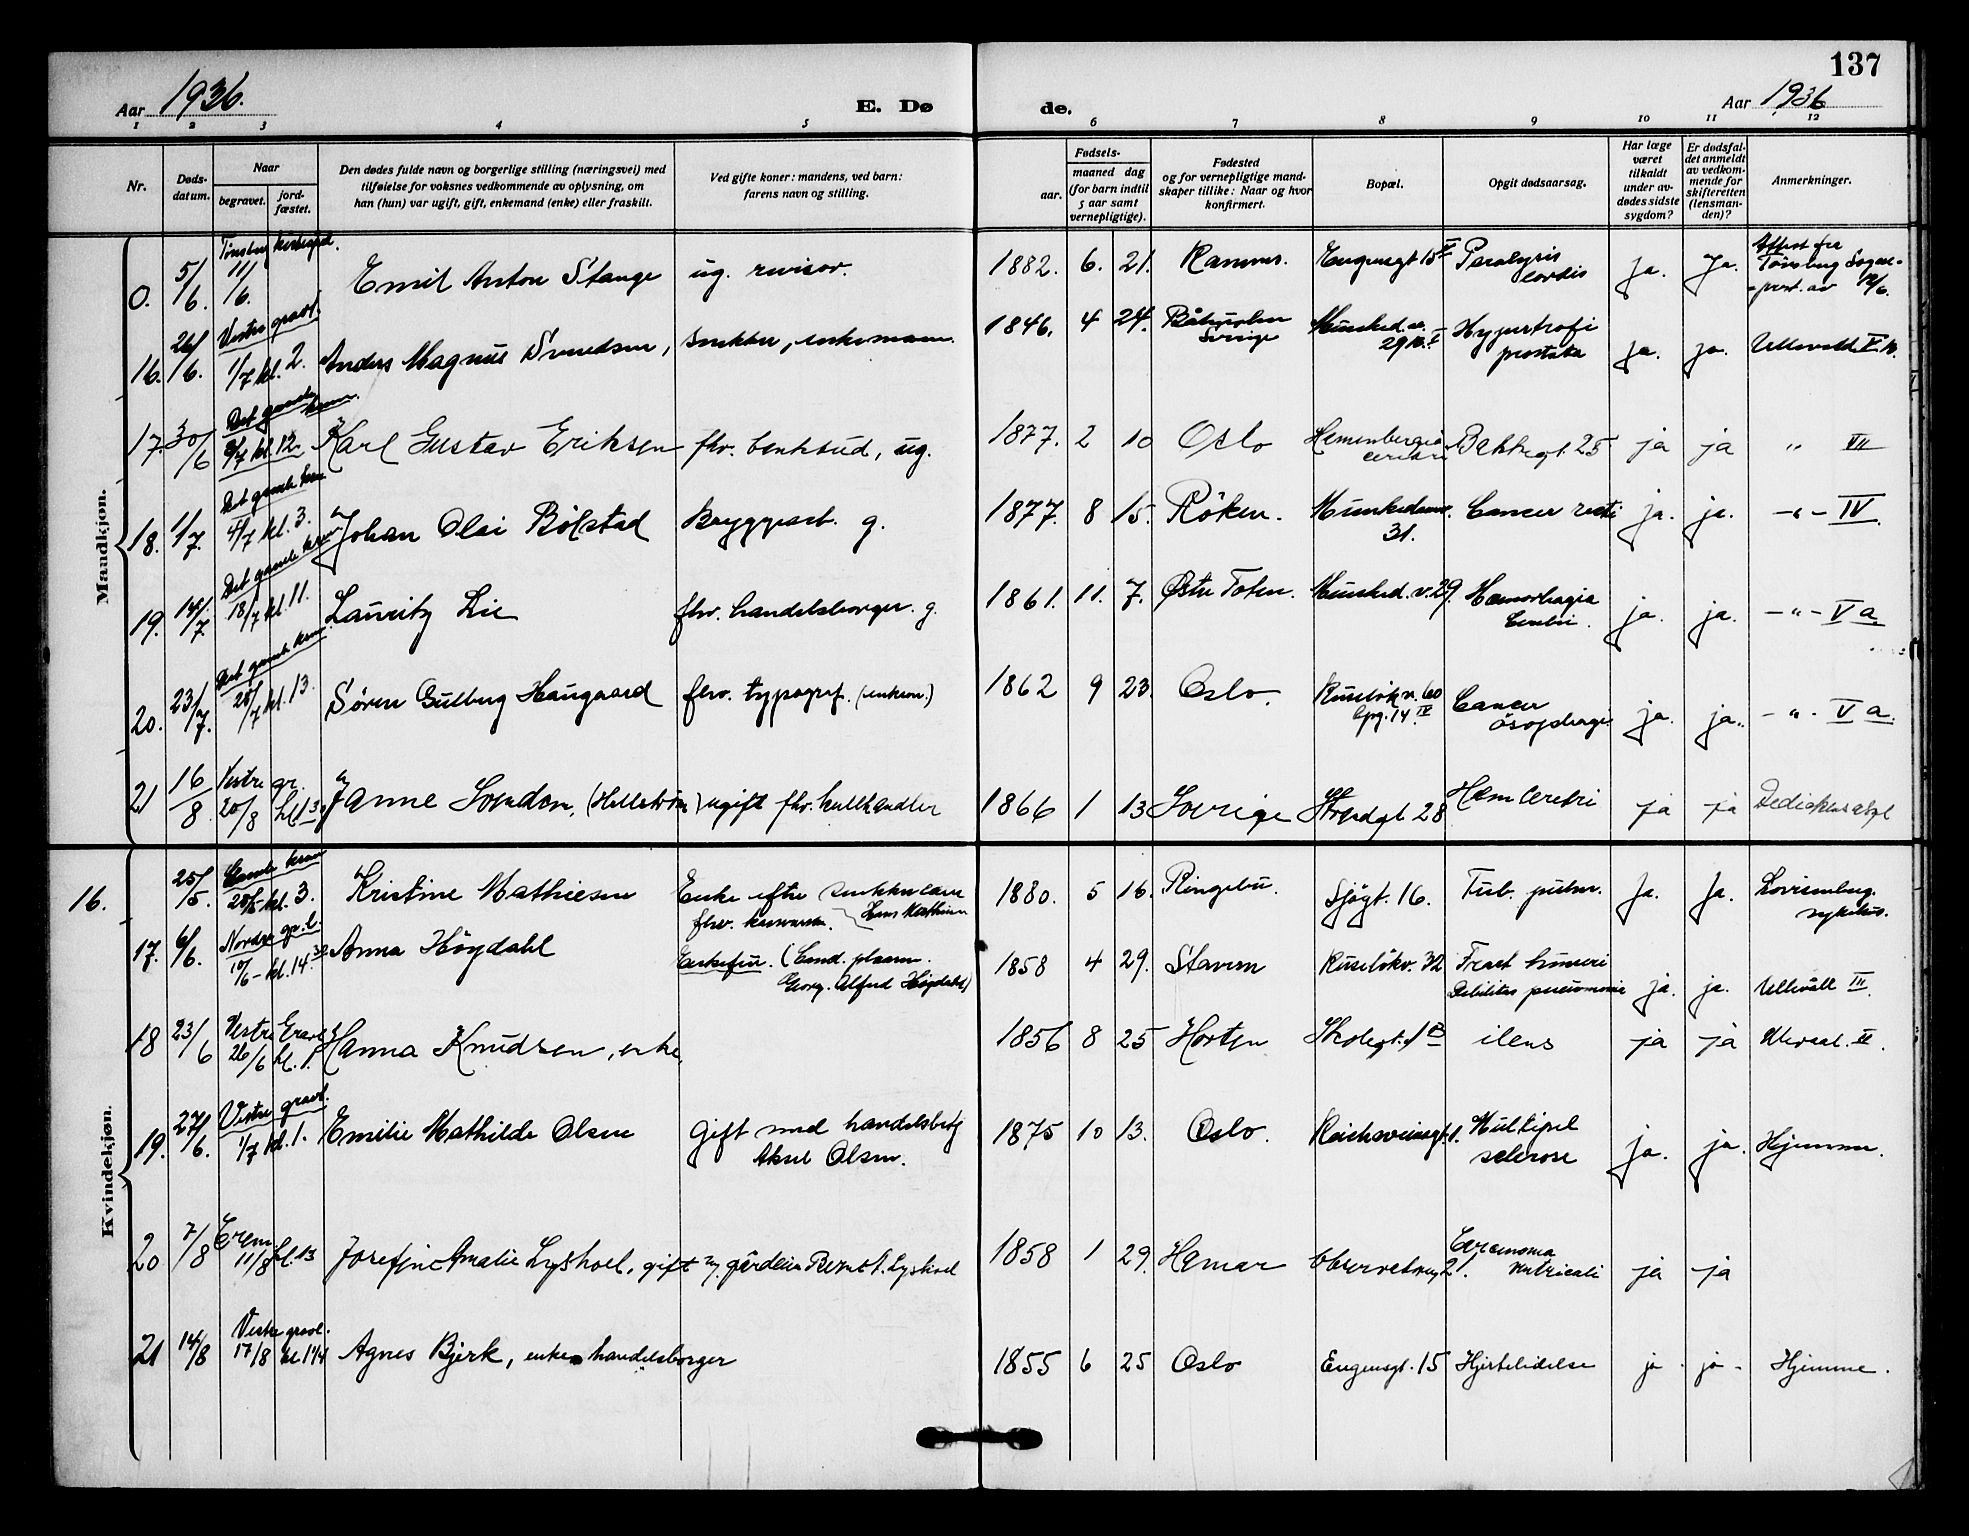 137
Aar 1936.
E. Dø
de.
Aar 1936
1 2 3 4 5 6 7 8 9 10 11 12
Nr.
Døds-
datum.
Naar
begravet.
jord-
fæstet.
Den dødes fulde navn og borgerlige stilling (næringsvei) med
tilføielse for voksnes vedkommende av oplysning, om
han (hun) var ugift, gift, enkemand (enke) eller fraskilt.
Ved gifte koner: mandens, ved barn:
farens navn og stilling.
Fødsels-
aar.
maaned dag
(for barn indtil
5 aar samt
vernepligtige).
Fødested
og for vernepligtige mand-
skaper tillike: Naar og hvor
konfirmert.
Bopæl.
Opgit dødsaarsag.
Har læge
været
tilkaldt
under av-
dødes sidste
sygdom?
Er dødsfal-
det anmeldt
av vedkom-
mende for
skifteretten
(lensman-
den)?
Anmerkninger.
Mandkjøn.
0. 5/6. 11/6. Emil Anton Stange ug. revisor. 1882. 6. 21. Ramnes. Eugensgt 15 Paralysis
cordis ja. Ja. Attest fra
Tønsberg Sogne-
prest. av 12/6.
16. 26/6. Vestre gravl.
1/7 kl. 2. Anders Magnus Svendsen, snekker, enkemann. 1846. 4 24. Båhuslen
Sverige Munked.v.
29 Hypertrofi
prostata ja. ja. Ullevål V.
17. 30/6 Det gamle krem.
/7 kl. 12 Karl Gustav Eriksen fhv. benkbud, ug. 1877. 2 10 Oslo Hemorhagia
cerebri Bakkegt. 25 ja ja " VII
18. 1/7. Det gamle krem
4/7 kl. 3. Johan Olai Bølstad Bryggearb. g. 1877. 8 15. Röken. Munkedamsv.
31. Cancer recti ja. ja. -"- IV.
19. 14/7. Det gamle krem
18/7 kl. 11. Lauritz Lie fhv. handelsborger. g. 1861. 11. 7. Østre Toten. Munked.v. 29. Hæmorhagia
Cerebri. ja. ja. -"- V a.
20. 23/7. Det gamle krem.
28/7 kl. 13. Søren Gulberg Haugaard fhv. typograf. (enkem.) 1862 9 23. Oslo. Ruseløkv. 60
Opg. 14 IV Cancer
øsophagi ja. ja. -"- V a.
21 16/8 Vestre gr.
20/8 kl 13 Janne (Hellström) ugift fhv. kullhandler 1866 1 13 Sverige 28 Hæm cerebri ja ja
Kvindekjøn.
16. 25/5. Gamle krem
28/5 kl. 3. Kristine Mathiesen Enke efter snekker
fhv. Hans Mathisen 1880. 5 16. Ringebu. Sjøgt. 16. Tub. pulm. Ja. Ja. Lovisenberg
sykehus.
17. 6/6. Nordre gr.l.
10/6 - kl. 14.30 Anna Høgdahl Enkefru. (Cand. pharm.
Georg. Alfred Høgdahl) 1858 4 29. Stavern Ruseløkv. 32 Fract humeri
Debilitas pneumonie ja. ja. Ullevål III.
18 23/6 Vestre Gravl
26/6 kl. 1. Hanna Knudsen, enke. 1856 8 25 Horten Skolegt. 1 B ileus ja ja Ullevaal. II.
19. 27/6. Vestre gravl.
1/7 kl. 1. Emilie Mathilde Olsen Gift med handelsbetj
Aksel Olsen. 1875 10 13. Oslo. Reichsweinsgt. 1. Multipel
sclerose ja. ja. Hjemme.
20 7/8 Crem
11/8 kl. 13 Josefine Amalie Lyshoel, gift m. gårdeier Bernt A. Lyshoel 1858 1 29. Hamar Observatoriegt 21. Carcinoma
ventriculi ja ja
21 14/8 Vestre gravl.
17/8 kl 14 Agnes Bjerk, enke handelsborger 1855 6 25 Oslo Eugensgt. 15 Hjertelidelse ja ja - Hjemme.